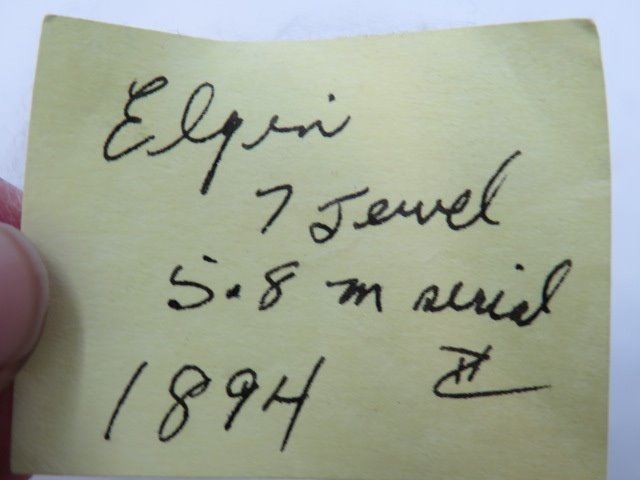 Elgin
7 Jewel
5.8 m serial
#
1894